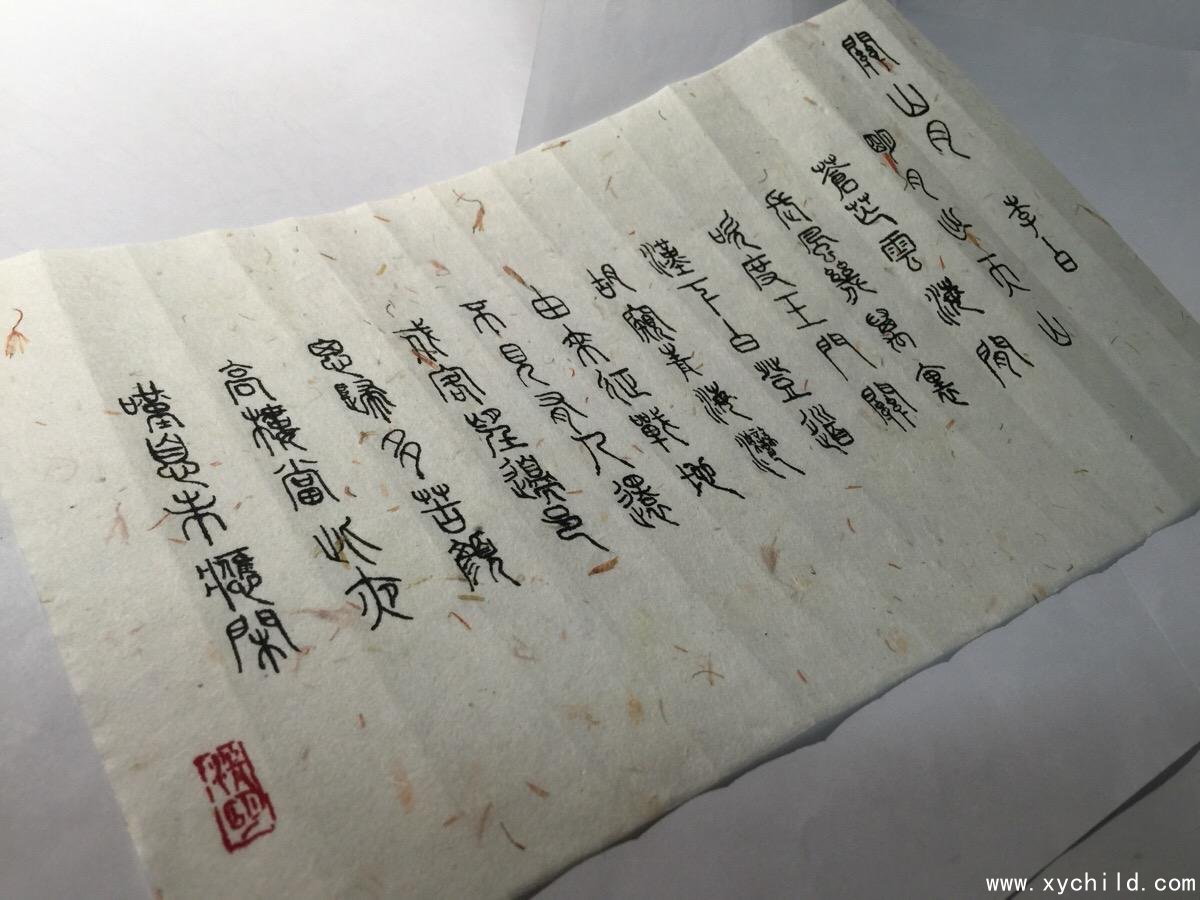 關山月 李白
明月出天山
蒼茫雲海間
長風幾萬裏
吹度玉門關
漢下白登道
胡窺青海灣
由來征戰地
不見有人還
戍客望邊邑
思歸多苦顏
高樓當此夜
嘆息未應閑
www.xychild.com